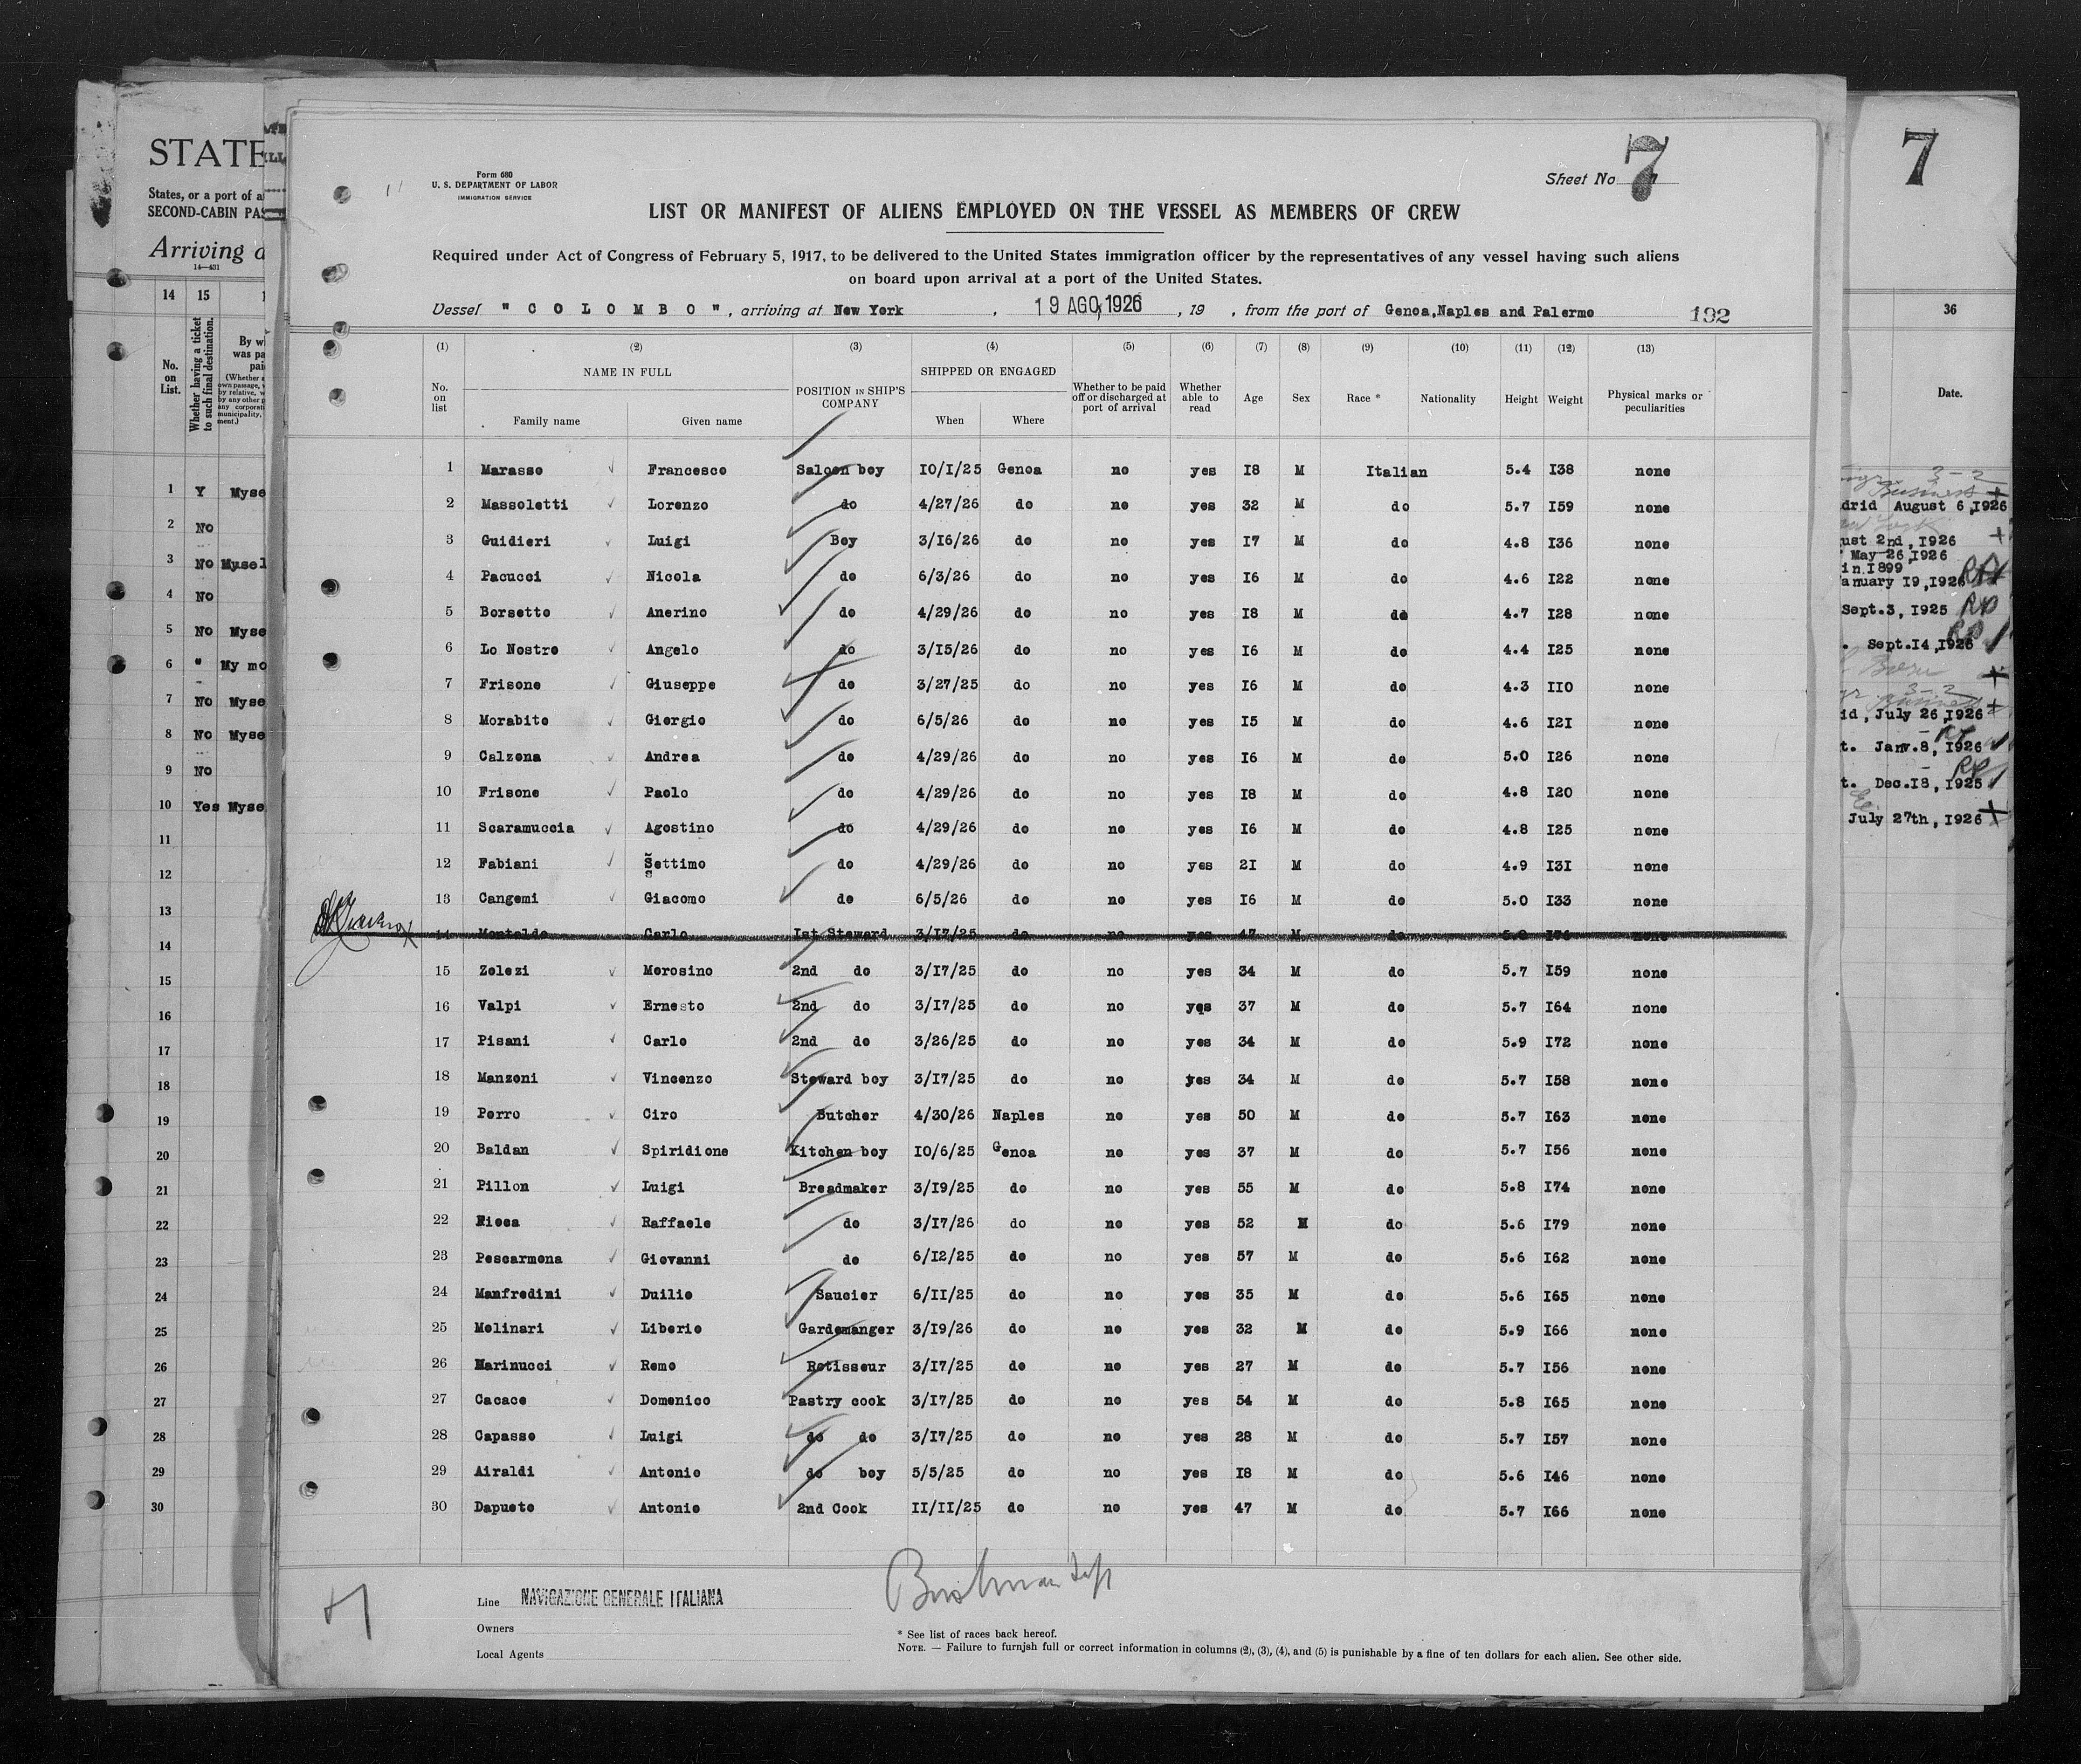 STATE
States, or a port of a
SECOND-CABIN PAS
Arriving a
14—431
14 15
No. on List.
Whether having a ticket to such final destination.
1 Y Myse
2 No
3 No Mysel
4 No
5 No Myse
6 " My mo
7 No Myse
8 No Myse
9 No
10 Yes Myse
11
12
13
14
15
16
17
18
19
20
21
22
23
24
25
26
27
28
29
30
Form 680
U. S. DEPARTMENT OF LABOR
IMMIGRATION SERVICE
Sheet No 7
LIST OR MANIFEST OF ALIENS EMPLOYED ON THE VESSEL AS MEMBERS OF CREW
Required under Act of Congress of February 5, 1917, to be delivered to the United States immigration officer by the representatives of any vessel having such aliens
on board upon arrival at a port of the United States.
Vessel " C O L O M B O ", arriving at New York , 19 AGO 1926 , 19 , from the port of Genoa,Naples and Palermo 192
(1) (2) (3) (4) (5) (6) (7) (8) (9) (10) (11) (12) (13)
No. on list NAME IN FULL Family name Given name POSITION IN SHIP'S COMPANY SHIPPED OR ENGAGED When Where Whether to be paid off or discharged at port of arrival Whether able to read Age Sex Race * Nationality Height Weight Physical marks or peculiarities
1 Marasso Francesco Saloon boy 10/1/25 Genoa no yes 18 M Italian 5.4 138 none
2 Massoletti Lorenzo do 4/27/26 do no yes 32 M do 5.7 159 none
3 Guidieri Luigi Boy 3/16/26 do no yes 17 M do 4.8 136 none
4 Pacucci Nicola do 6/3/26 do no yes 16 M do 4.6 122 none
5 Borsetto Anerino do 4/29/26 do no yes 18 M do 4.7 128 none
6 Lo Nostro Angelo do 3/15/26 do no yes 16 M do 4.4 125 none
7 Frisone Giuseppe do 3/27/25 do no yes 16 M do 4.3 110 none
8 Morabito Giorgio do 6/5/26 do no yes 15 M do 4.6 121 none
9 Calzona Andrea do 4/29/26 do no yes 16 M do 5.0 126 none
10 Frisone Paolo do 4/29/26 do no yes 18 M do 4.8 120 none
11 Scaramuccia Agostino do 4/29/26 do no yes 16 M do 4.8 125 none
12 Fabiani Settimo do 4/29/26 do no yes 21 M do 4.9 131 none
13 Cangemi Giacomo do 6/5/26 do no yes 16 M do 5.0 133 none
14 Montaldo Carlo 1st Steward 3/17/25 do no yes 47 M do none
15 Zolezi Morosino 2nd do 3/17/25 do no yes 34 M do 5.7 159 none
16 Valpi Ernesto 2nd do 3/17/25 do no yes 37 M do 5.7 164 none
17 Pisani Carlo 2nd do 3/26/25 do no yes 34 M do 5.9 172 none
18 Manzoni Vincenzo Steward boy 3/17/25 do no yes 34 M do 5.7 158 none
19 Porro Ciro Butcher 4/30/26 Naples no yes 50 M do 5.7 163 none
20 Baldan Spiridione Kitchen boy 10/6/25 Genoa no yes 37 M do 5.7 156 none
21 Pillon Luigi Breadmaker 3/19/25 do no yes 55 M do 5.8 174 none
22 Ricca Raffaele do 3/17/26 do no yes 52 M do 5.6 179 none
23 Pescarmona Giovanni do 6/12/25 do no yes 57 M do 5.6 162 none
24 Manfredini Duilio Saucier 6/11/25 do no yes 35 M do 5.6 165 none
25 Molinari Liborio Gardemanger 3/19/26 do no yes 32 M do 5.9 166 none
26 Marinucci Remo Rotisseur 3/17/25 do no yes 27 M do 5.7 156 none
27 Cacace Domenico Pastry cook 3/17/25 do no yes 54 M do 5.8 165 none
28 Capasso Luigi do do 3/17/25 do no yes 28 M do 5.7 157 none
29 Airaldi Antonio do boy 5/5/25 do no yes 18 M do 5.6 146 none
30 Dapueto Antonio 2nd Cook 11/11/25 do no yes 47 M do 5.7 166 none
Line NAVIGAZIONE GENERALE ITALIANA
Owners
Local Agents
* See list of races back hereof.
NOTE. — Failure to furnish full or correct information in columns (2), (3), (4), and (5) is punishable by a fine of ten dollars for each alien. See other side.
7
36
Date.
3-2
Business
drid August 6,1926
ust 2nd, 1926
May 26,1926
in 1899
anuary 19,1926
Sept.3, 1925
. Sept.14,1926
3-2
id, July 26,1926
t. Janv.8, 1926
t. Dec.18, 1925
July 27th, 1926